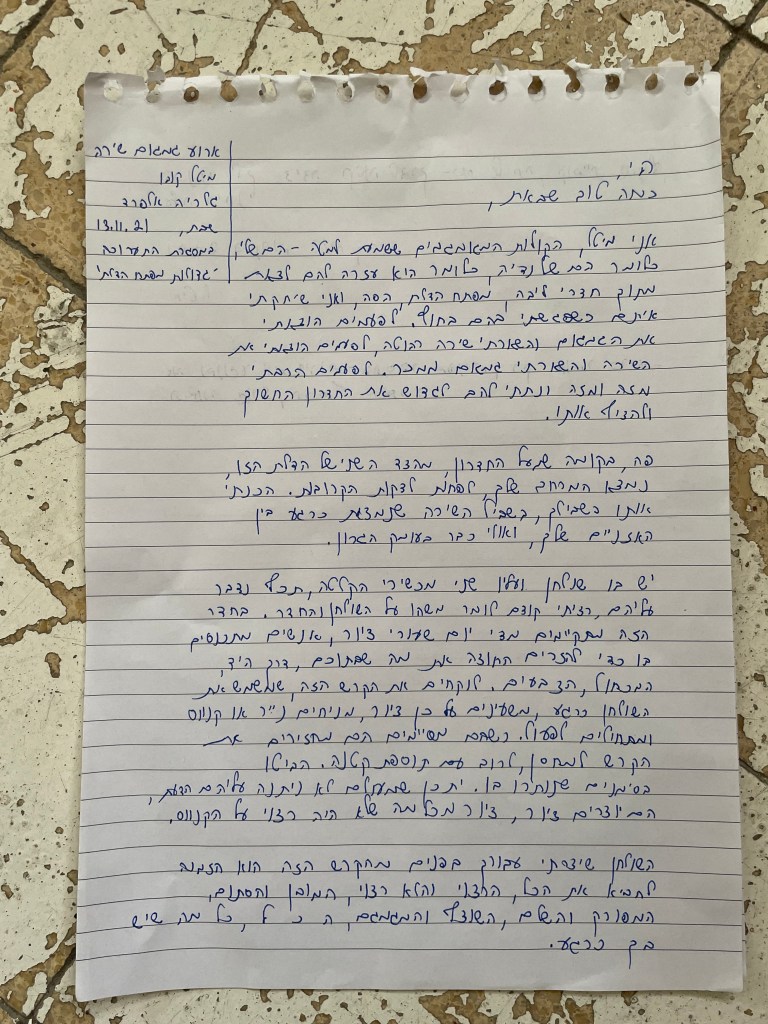 ארוע גמגום שירה
מיטל קובו
גלריה אלפרד
שבת, 13.11.21
במסגרת התערוכה
"גדולות מפתח הדלת"
היי,
כמה טוב שבאת,
אני מיטל, הקולות המגמגמים ששמעת למטה - הם שלי,
כלומר הם של נדיה, כלומר היא עזרה להם לצאת
מתוך חדרי ליבה, מפתח הדלת, הפה, ואני שיחקתי
איתם כשפגשתי בהם בחוץ. לפעמים הוצאתי
את הגמגום והשארתי שירה רהוטה, לפעמים הוצאתי את
השירה והשארתי גמגום ממכר. לפעמים הרבתי
מזה ומזה ונתתי להם לגדוש את החדרון החשוך
ולהציף אותו.
פה, בקומה שמעל החדרון, מהצד השני של הדלת הזו,
נמצא המרחב שלך, לפחות לדקות הקרובות. הכנתי
אותו בשבילך, בשביל השירה שנמצאת כרגע בין
האזניים שלך, ואולי כבר בעומק הגרון.
יש בו שולחן ועליו שני מכשירי הקלטה, תכף נדבר
עליהם, רציתי קודם לומר משהו על השולחן והחדר. בחדר
הזה מתקיימים מדי יום שעורי ציור, אנשים מתכנסים
בו כדי להזרים החוצה את מה שבתוכם, דרך היד,
המכחול, הצבעים. לוקחים את הקרש הזה, שמשמש את
השולחן כרגע, משעינים על כן ציור, מניחים נייר או קנווס
ומתחילים לפעול. כשהם מסיימים הם מחזירים את
הקרש למחסן, לרוב עם תוספת קטנה. הביטו
בסימנים שנותרו בו. יתכן שמעולם לא ניתנה עליהם הדעת,
הם יוצרים ציור, ציור מכל מה שלא היה רצוי על הקנווס.
השולחן שיצרתי עבורך בפנים מהקרש הזה הוא הזמנה
להביא את הכל, הרצוי והלא רצוי, המובן והסתום,
המפורק והשלם, השוצף והמגמגם, ה כ ל, כל מה שיש
בך כרגע.